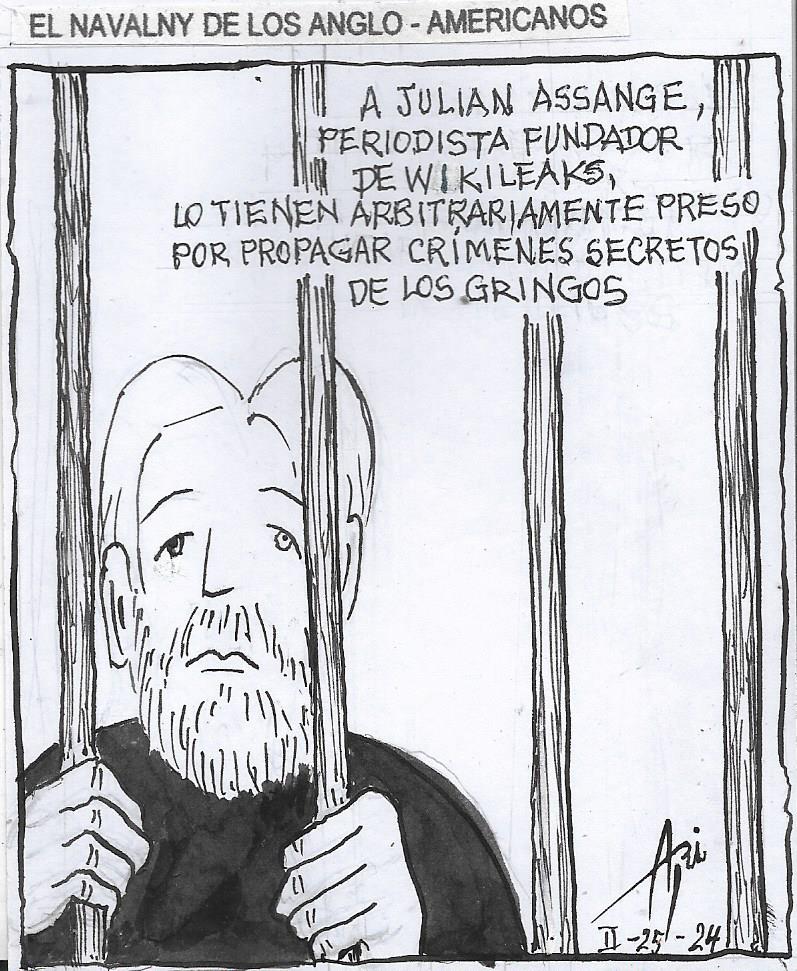 EL NAVALNY DE LOS ANGLO - AMERICANOS
A JULIAN ASSANGE,
PERIODISTA FUNDADOR
DE WIKILEAKS,
LO TIENEN ARBITRARIAMENTE PRESO
POR PROPAGAR CRÍMENES SECRETOS
DE LOS GRINGOS
Api
II-25-24